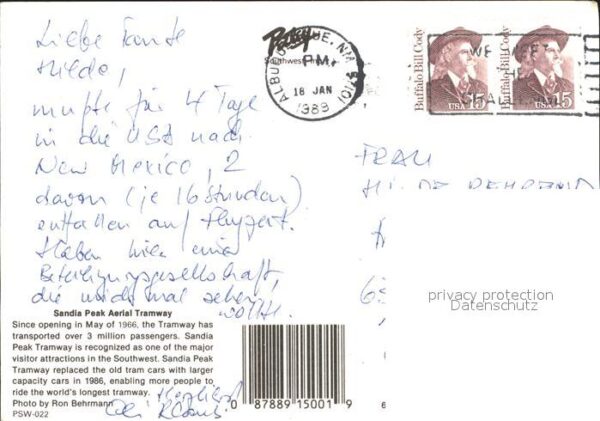 Liebe Tante
Hilde,
mußte für 4 Tage
in die USA nach
New Mexico, 2
davon (je 16 Stunden)
entfallen auf Flugzeit.
Haben hier eine
Beteiligungsgesellschaft,
die mich mal sehen
wollte.
Herzlichst
Klaus
Petley
Southwest
ALBUQUERQUE, NM 87101
PM
18 JAN
1989
Buffalo Bill Cody
USA 15
Buffalo Bill Cody
USA 15
FRAU
privacy protection
Datenschutz
Sandia Peak Aerial Tramway
Since opening in May of 1966, the Tramway has
transported over 3 million passengers. Sandia
Peak Tramway is recognized as one of the major
visitor attractions in the Southwest. Sandia Peak
Tramway replaced the old tram cars with larger
capacity cars in 1986, enabling more people to
ride the world's longest tramway.
Photo by Ron Behrmann
PSW-022
0 87889 15001 9